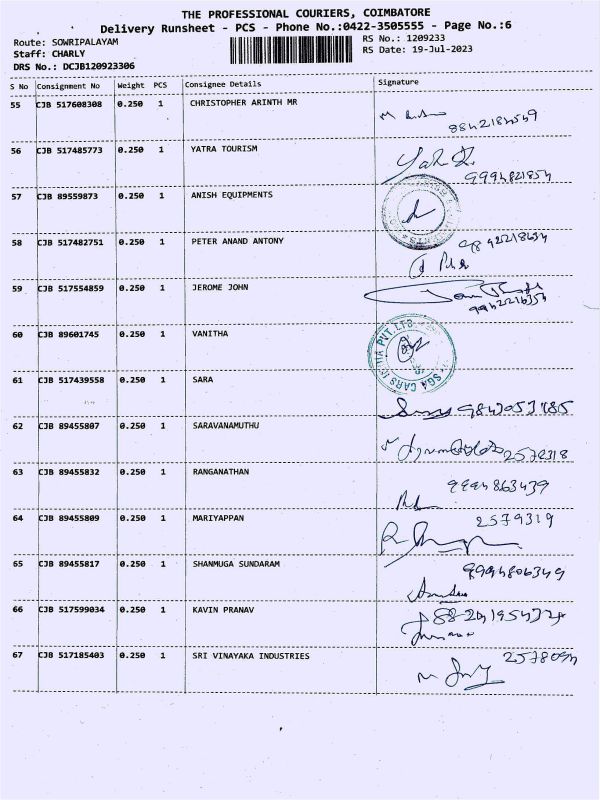 THE PROFESSIONAL COURIERS, COIMBATORE
Delivery Runsheet - PCS - Phone No.:0422-3505555 - Page No.:6
Route: SOWRIPALAYAM RS No.: 1209233
Staff: CHARLY RS Date: 19-Jul-2023
DRS No.: DCJB120923306
S No Consignment No Weight PCS Consignee Details Signature
55 CJB 517608308 0.250 1 CHRISTOPHER ARINTH MR
56 CJB 517485773 0.250 1 YATRA TOURISM
9994821854
57 CJB 89559873 0.250 1 ANISH EQUIPMENTS
58 CJB 517482751 0.250 1 PETER ANAND ANTONY
59 CJB 517554859 0.250 1 JEROME JOHN
60 CJB 89601745 0.250 1 VANITHA
SGA CARS INDIA PVT.LTD.
61 CJB 517439558 0.250 1 SARA
62 CJB 89455807 0.250 1 SARAVANAMUTHU
2572318
63 CJB 89455832 0.250 1 RANGANATHAN
9994863439
64 CJB 89455809 0.250 1 MARIYAPPAN
2579319
65 CJB 89455817 0.250 1 SHANMUGA SUNDARAM
9994806349
66 CJB 517599034 0.250 1 KAVIN PRANAV
67 CJB 517185403 0.250 1 SRI VINAYAKA INDUSTRIES